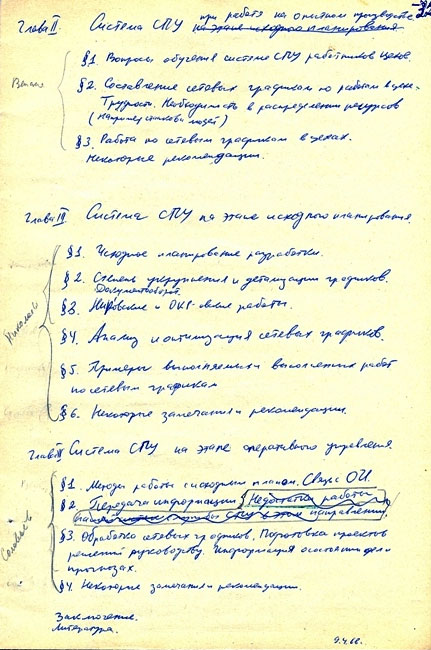 Глава II. Система СПУ при работе на опытном производстве
на этапе исходного планирования
§1. Вопросы обучения системе СПУ работников цехов.
§2. Составление сетевых графиков по работам в цехе.
Трудности. Необходимость в распределении ресурсов
(например станков и людей)
§3. Работа по сетевым графикам в цехах.
Некоторые рекомендации.
Глава Система СПУ на этапе исходного планирования.
§1. Исходное планирование разработки.
§2. Степень укрупнения и детализации графиков.
Документооборот.
§3. и ОКР-овские работы.
§4. Анализ и оптимизация сетевых графиков.
§5. Примеры выполняемых и выполненных работ
по сетевым графикам
§6. Некоторые замечания и рекомендации.
Глава Система СПУ на этапе оперативного управления.
§1. Методы работы с исходным планом. Связь ОИ.
§2. Передача информации Недостатки работы
СПУ в этом направлении.
§3. Обработка сетевых графиков. Подготовка проектов
решений руководству. Информация о состоянии дел и
прогнозах.
§4. Некоторые замечания и рекомендации.
Заключение.
Литература.
9.4.66.